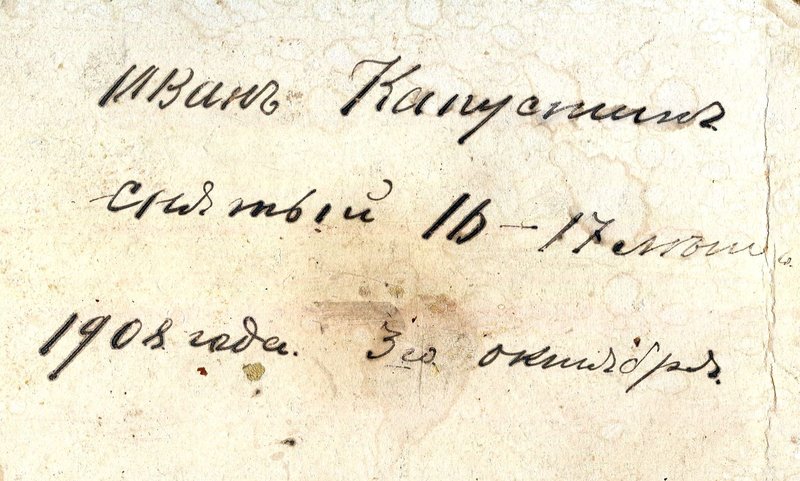 Иванъ Капустинъ
снятый 16-17 лѣтъ.
1908 года. 3го октября.